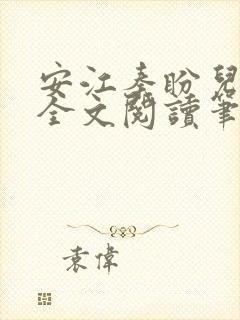 安江秦盼兒
全文閱讀筆
袁偉